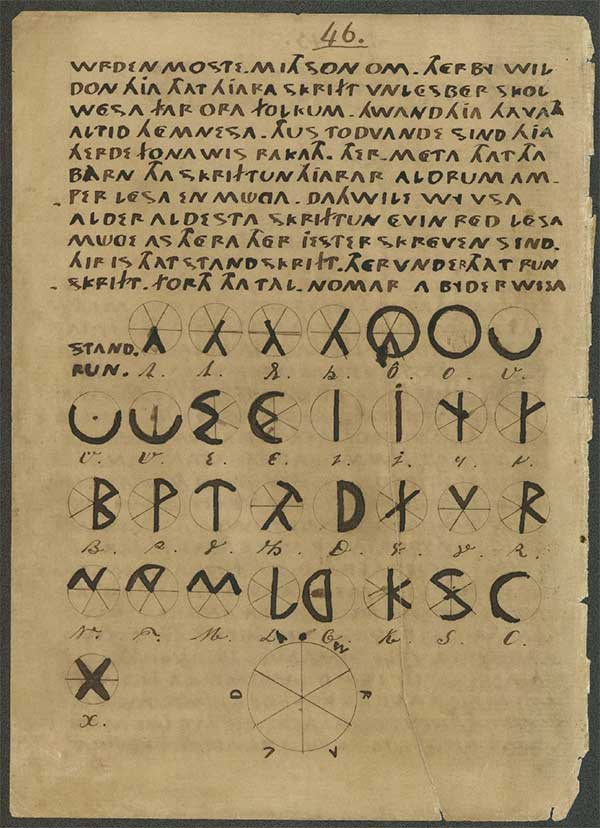 46.
WRDEN MOSTE. MITH SON OM. THERBY WIL
DON HIA THAT HIARA SKRIFT VNLESBER SKOL
WESA FAR ORA FOLKUM. HWAND HIA HAVATH
ALTID HEMNESA. THUS TODVANDE SIND HIA
HERDE FONA WIS RAKATH. THER-META THAT THA
BÀRN THA SKRIFTUN HIARAR ALDRUM AM-
PER LESA EN MUGA. DAHWILE WY VSA
ALDER ALDESTA SKRIFTUN EVIN RED LESA
MUGE AS THERA THER JESTER SKREVEN SIND.
HIR IS THAT STANDSKRIFT. THERUNDER THAT RUN
SKRIFT. FORTH THA TAL-NOMAR A BYDER WISA
STAND.
RUN. A. A. O. O. U.
U. W. E. E. I. J. Y.
B. P. T. TH. D. F. V. R.
N. M. L. G. K. S. C.
X.